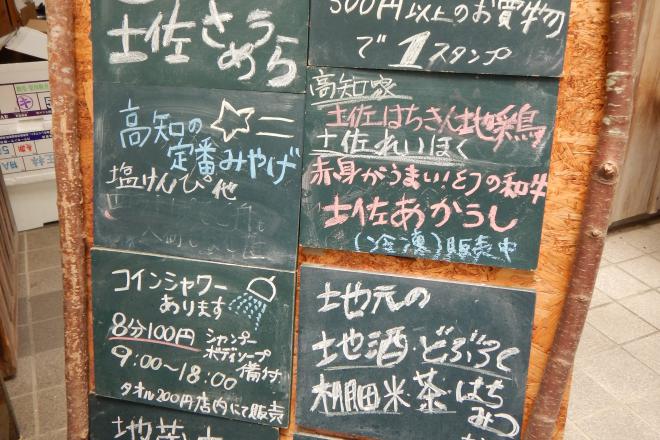 土佐さめうら
高知の
定番みやげ
塩けんぴ 他
コインシャワー
あります
8分100円
シャンプー
ボディソープ
備付
9:00～18:00
タオル200円店内にて販売
500円以上のお買物
で1スタンプ
高知家
土佐はちきん地鶏
土佐れいほく
赤身がうまい!とつの和牛
土佐あかうし
(冷凍)販売中
地元の
地酒・どぶろく
棚田米・茶・はち
みつ